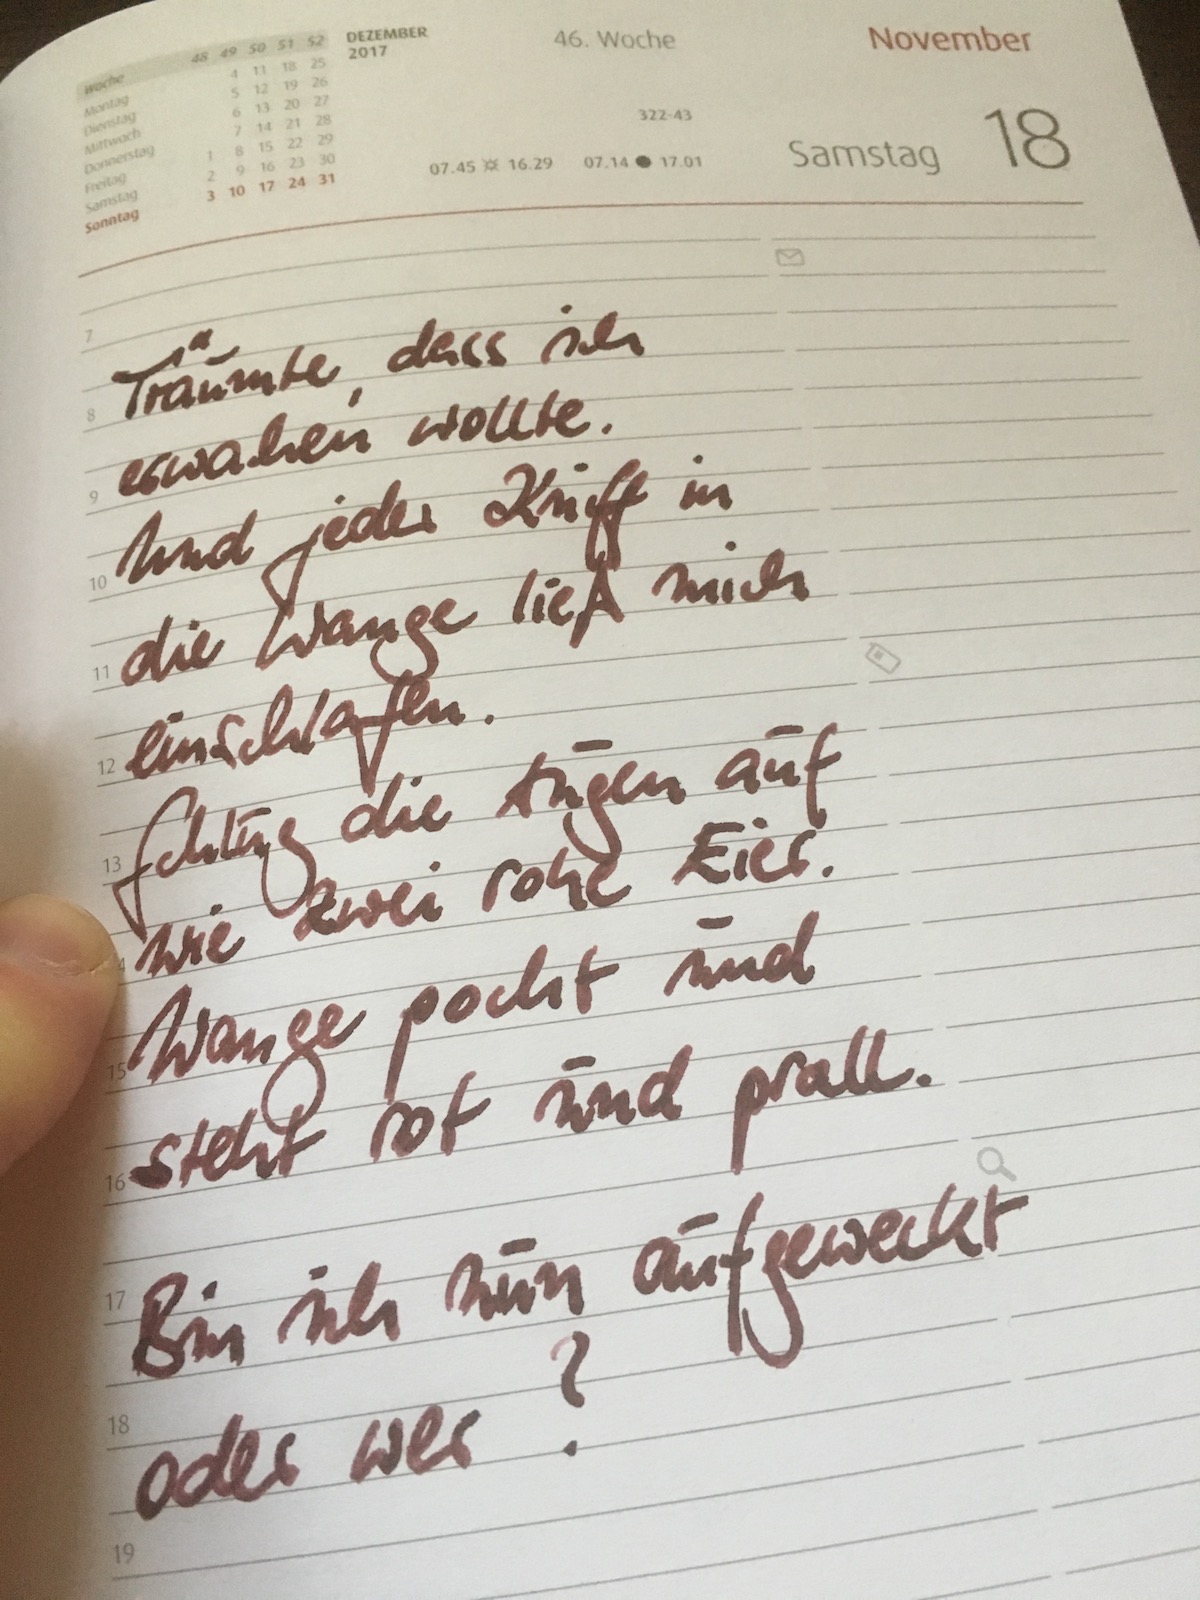 Woche 48 49 50 51 52
Montag 4 11 18 25
Dienstag 5 12 19 26
Mittwoch 6 13 20 27
Donnerstag 7 14 21 28
Freitag 1 8 15 22 29
Samstag 2 9 16 23 30
Sonntag 3 10 17 24 31
DEZEMBER
2017
46. Woche
November
322-43
07.45 16.29 07.14 17.01
Samstag 18
7
8
9
10
11
12
13
14
15
16
17
18
19
Träumte, dass ich
erwachen wollte.
Und jeder Kniff in
die Wange ließ mich
einschlafen.
Schlug die Augen auf
wie zwei rohe Eier.
Wange pocht und
steht rot und prall.
Bin ich nun aufgeweckt
oder wer?